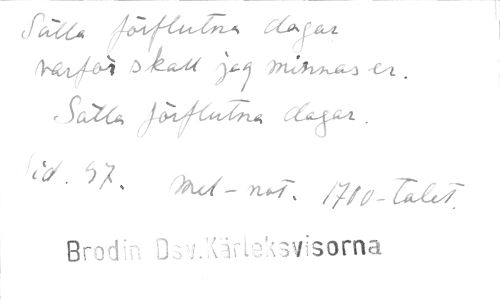 Sälla förflutna dagar
varför skall jag minnas er.
Sälla förflutna dagar.
Sid. 97. Mel-not. 1700-talet.
Brodin Dsv.Kärleksvisorna